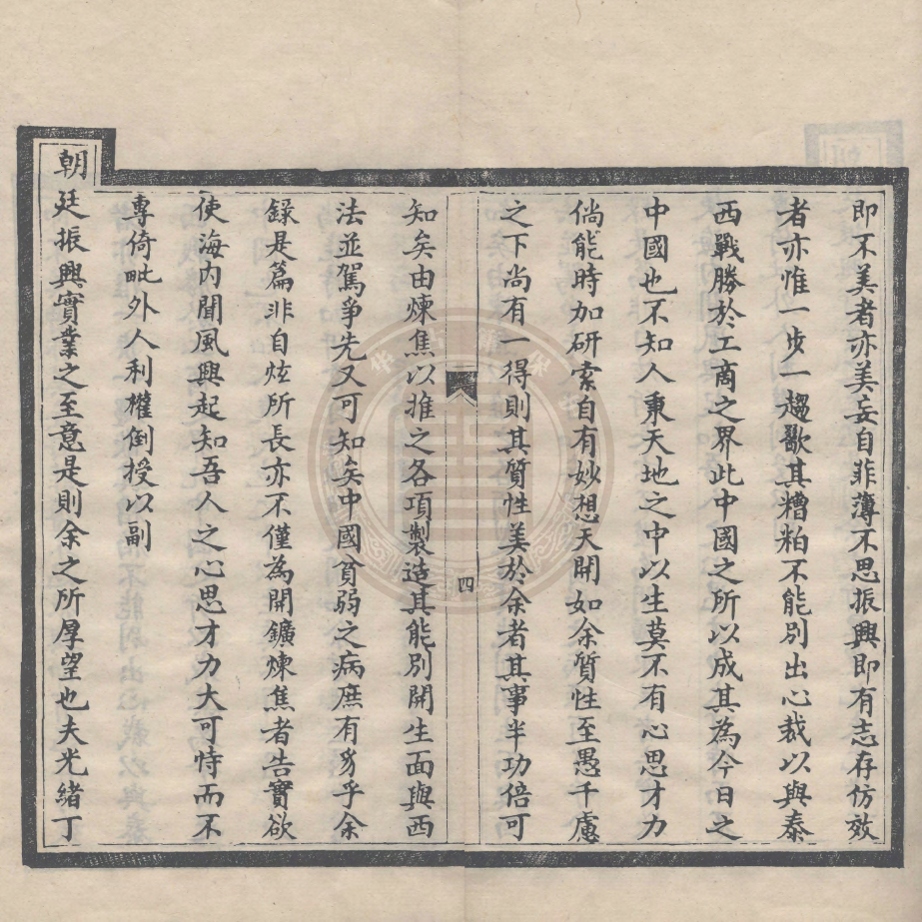 即不美者亦美妄自菲薄不思振興即有志存仿效
者亦惟一步一趨歠其糟粕不能別出心裁以與泰
西戰勝於工商之界此中國之所以成其為今日之
中國也不知人秉天地之中以生莫不有心思才力
倘能時加研索自有妙想天開如余質性至愚千慮
之下尚有一得則其質性美於余者其事半功倍可
四
知矣由煉焦以推之各項製造其能別開生面與西
法並駕爭先又可知矣中國貧弱之病庶有豸乎余
錄是篇非自炫所長亦不僅為開鑛煉焦者告實欲
使海內聞風興起知吾人之心思才力大可恃而不
專倚毗外人利權倒授以副
朝廷振興實業之至意是則余之所厚望也夫光緒丁